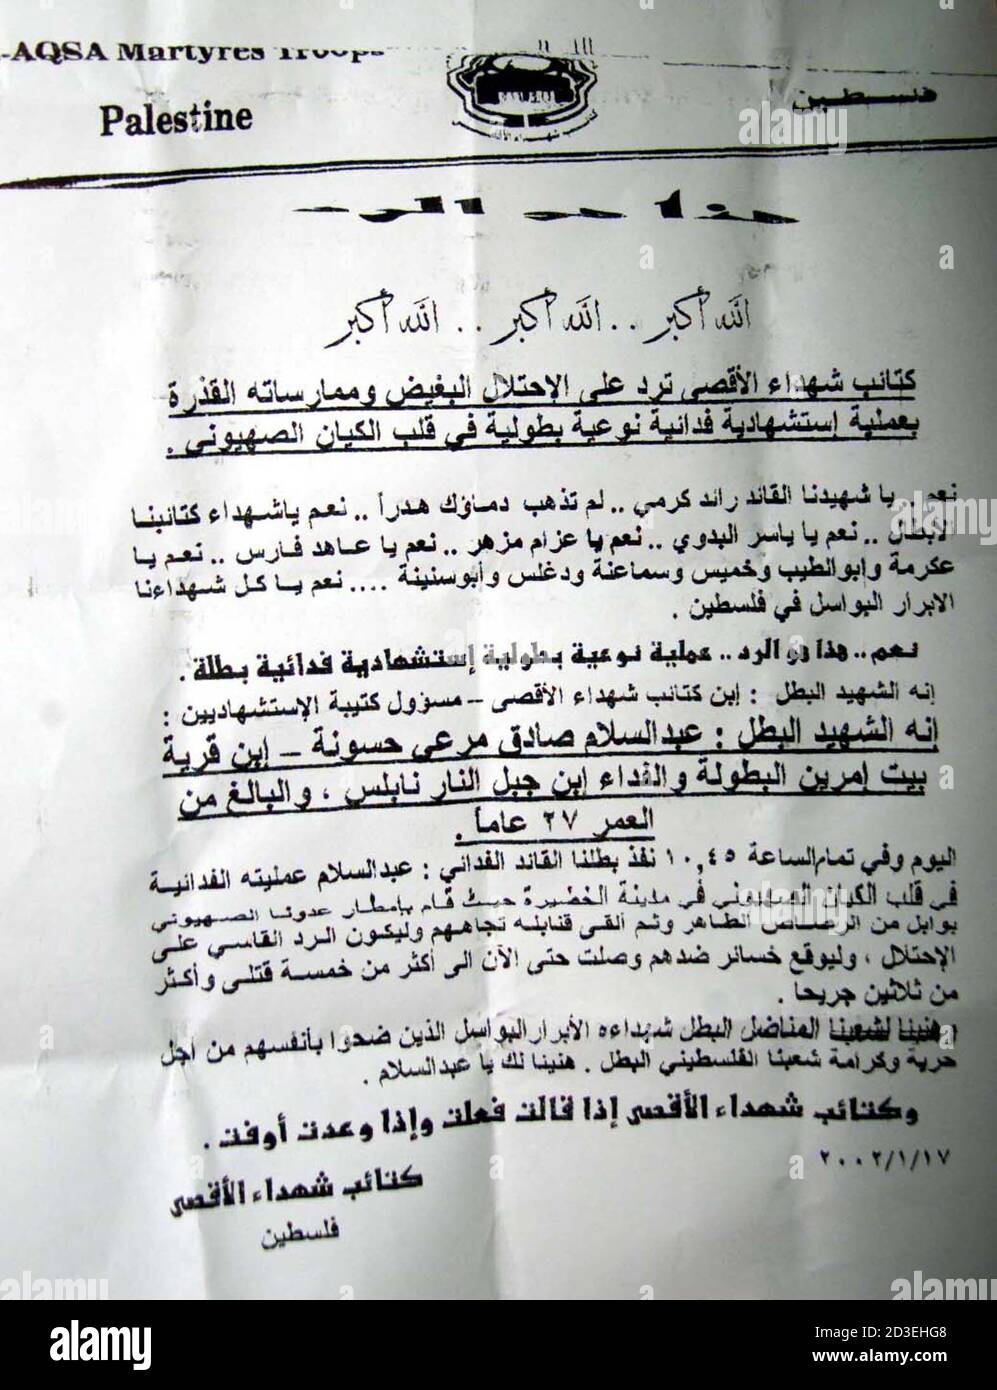 -AQSA Martyres Troops
Palestine
فلسطين
كتائب شهداء الأقصى
هذا هو الرد
الله أكبر .. الله أكبر .. الله أكبر
كتائب شهداء الأقصى ترد على الإحتلال البغيض وممارساته القذرة
بعملية إستشهادية فدائية نوعية بطولية في قلب الكيان الصهيوني .
نعم .. يا شهيدنا القائد رائد كرمي .. لم تذهب دماؤك هدراً .. نعم ياشهداء كتائبنا
الأبطال .. نعم يا ياسر البدوي .. نعم يا عزام مزهر .. نعم يا عاهد فارس .. نعم يا
عكرمة وابوالطيب وخميس وسماعنة ودغلس وأبوسنينة .... نعم يا كل شهداءنا
الابرار البواسل في فلسطين .
نعم .. هذا هو الرد .. عملية نوعية بطولية إستشهادية فدائية بطلة .
إنه الشهيد البطل : إبن كتائب شهداء الأقصى – مسؤول كتيبة الإستشهاديين :
إنه الشهيد البطل : عبدالسلام صادق مرعي حسونة – إبن قرية
بيت إمرين البطولة والفداء إبن جبل النار نابلس ، والبالغ من
العمر ٢٧ عاماً .
اليوم وفي تمام الساعة ١٠,٤٥ نفذ بطلنا القائد الفدائي : عبدالسلام عمليته الفدائية
في قلب الكيان الصهيوني في مدينة الخضيرة حيث قام بإمطار عدونا الصهيوني
بوابل من الرصاص الطاهر وثم ألقى قنابله تجاههم وليكون الرد القاسي على
الإحتلال ، وليوقع خسائر ضدهم وصلت حتى الآن الى أكثر من خمسة قتلى وأكثر
من ثلاثين جريحا .
هنيئا لشعبنا المناضل البطل شهداءه الأبرار البواسل الذين ضحوا بأنفسهم من أجل
حرية وكرامة شعبنا الفلسطيني البطل . هنيئا لك يا عبدالسلام .
وكتائب شهداء الأقصى إذا قالت فعلت وإذا وعدت أوفت .
٢٠٠٢/١/١٧
كتائب شهداء الأقصى
فلسطين
alamy
Image ID: 2D3EHG8
www.alamy.com